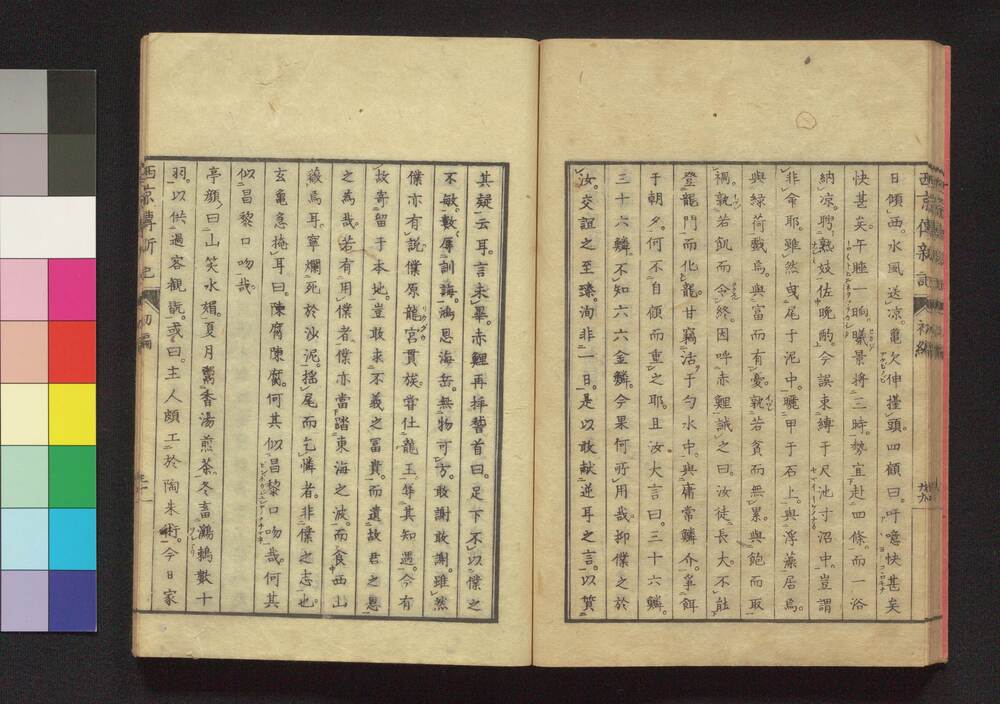 西京傳新記 初編
日傾西。水風送凉。龜欠伸擡頭。四顧曰。吁噫快甚矣
快甚矣。午睡一晌。曦景將三時。勢宜赴四條。而一浴
納凉。聘熟妓。佐晩酌。今誤束縛于尺池寸沼中。豈謂
非命耶。雖然曳尾于泥中。曬甲于石上。與浮藻居焉。
與綠荷戲焉。與富而有憂。孰若貧而無累。與飽而取
禍。孰若飢而令終。因呼赤鯉誡之曰。汝徒長大。不能
登龍門而化龍。甘竊活于勺水中。與庸常鱗介。爭餌
于朝夕。何不自傾而重之耶。且汝大言曰。三十六鱗。
三十六鱗。不知六六金鱗。今果何所用哉。抑僕之於
汝。交誼之至臻。洵非一日。是以敢献逆耳之言。以質
其疑云耳。言未畢。赤鯉再拜稽首曰。足下不以僕之
不敏。數辱訓誨。鴻恩海岳。無物可方。敢謝敢謝。雖然
僕亦有説。僕原龍宮貫族。嘗仕龍王。年其知遇。今有
故寄留于本地。豈敢求不義之冨貴。而遺故君之恩
之爲哉。若有用僕者。僕亦當踏東海之波。而食西山
薇焉耳。寧爛死於沙泥。搖尾而乞憐者。非僕之志也。
玄龜急掩耳曰。陳腐陳腐。何其似昌黎口吻哉。何其
似昌黎口吻哉。
亭顔曰山笑水媚。夏月鬻香湯煎茶。冬畜鸂鶒數十
羽。以供過客觀翫。或曰。主人頗工於陶朱術。今日家
西京傳新記 初編